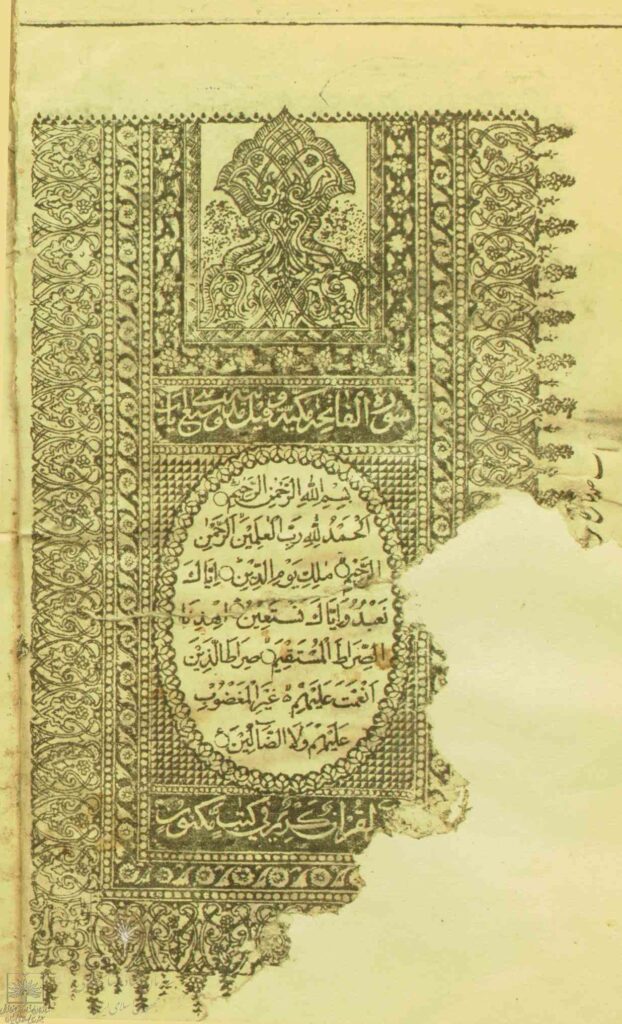 سورة الفاتحة مكية و قيل مدنية و هي سبع آيات
بِسْمِ اللهِ الرَّحْمٰنِ الرَّحِيْمِ
اَلْحَمْدُ لِلّٰهِ رَبِّ الْعٰلَمِيْنَ الرَّحْمٰنِ
الرَّحِيْمِ مٰلِكِ يَوْمِ الدِّيْنِ اِيَّاكَ
نَعْبُدُ وَاِيَّاكَ نَسْتَعِيْنُ اِهْدِنَا
الصِّرَاطَ الْمُسْتَقِيْمَ صِرَاطَ الَّذِيْنَ
اَنْعَمْتَ عَلَيْهِمْ غَيْرِ الْمَغْضُوْبِ
عَلَيْهِمْ وَلَا الضَّآلِّيْنَ
لقرآن كريم في كتاب مكنون